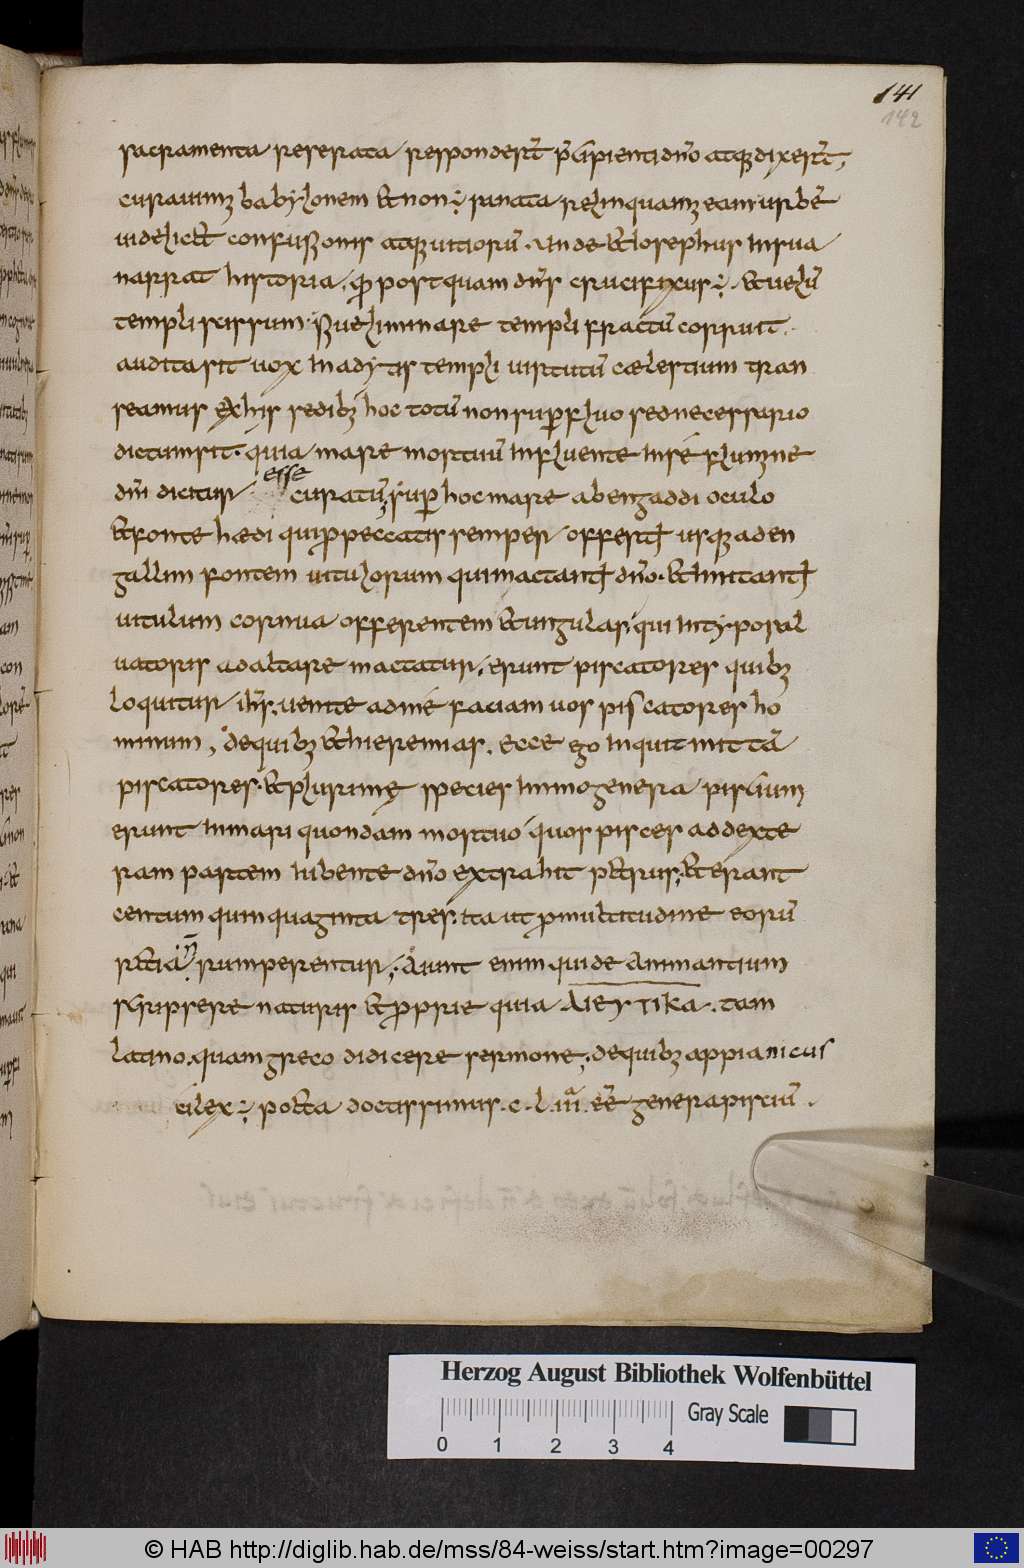 141
142
sacramenta reserata respondert p̄cipienti dn̄o atq; dixert̄;
curauim; babylonem & non; sanata relinquam; eam urbē
uidelic& confusionis atq; uitiorū. Unde & Iosephus in sua
narrat historia. qđ postquam dn̄s crucifixus; & uelū
templi scissum. siue liminare templi fractū corruit.
audita sit uox in adytis templi uirtutū cælestium tran
seamus ex his sedib; hoc totū non supfluo sed necessario
dictum sit. quia mare mortuū influente in sé flumine
dnī dicitur esse curatū; sup hoc mare ab engaddi oculo
& fonte hædi qui p peccatis semper offert̄ usq; ad en
gallim fontem uitulorum qui mactant̄ dn̄o. & imitant̄
uitulum cornua offerentem & ungulas; qui in typo sal
uatoris ad altare mactatur. erunt piscatores quib;
loquitur ih̄s. uenite ad mé faciam uos piscatores ho
minum, de quib; & hieremias. ecce ego inquit mittā
piscatores. & plurimę species immo genera piscium
erunt in mari quondam mortuó quos pisces ad dexte
ram partem iubente dn̄o extrahit p&rus; & erant
centum quinquaginta tres. ita ut p multitudine eorū
r&ia n̄ rumperentur; Aiunt enim qui de animantium
scripsere naturis & pprie quia ΑΛΙΕΥΤΙΚΑ. tam
latino. quam greco didicere sermone; de quib; appianicus
cilex; po&a doctissimus. c. l. iii. eē genera pisciū.
Herzog August Bibliothek Wolfenbüttel
Gray Scale
0 1 2 3 4
© HAB http://diglib.hab.de/mss/84-weiss/start.htm?image=00297